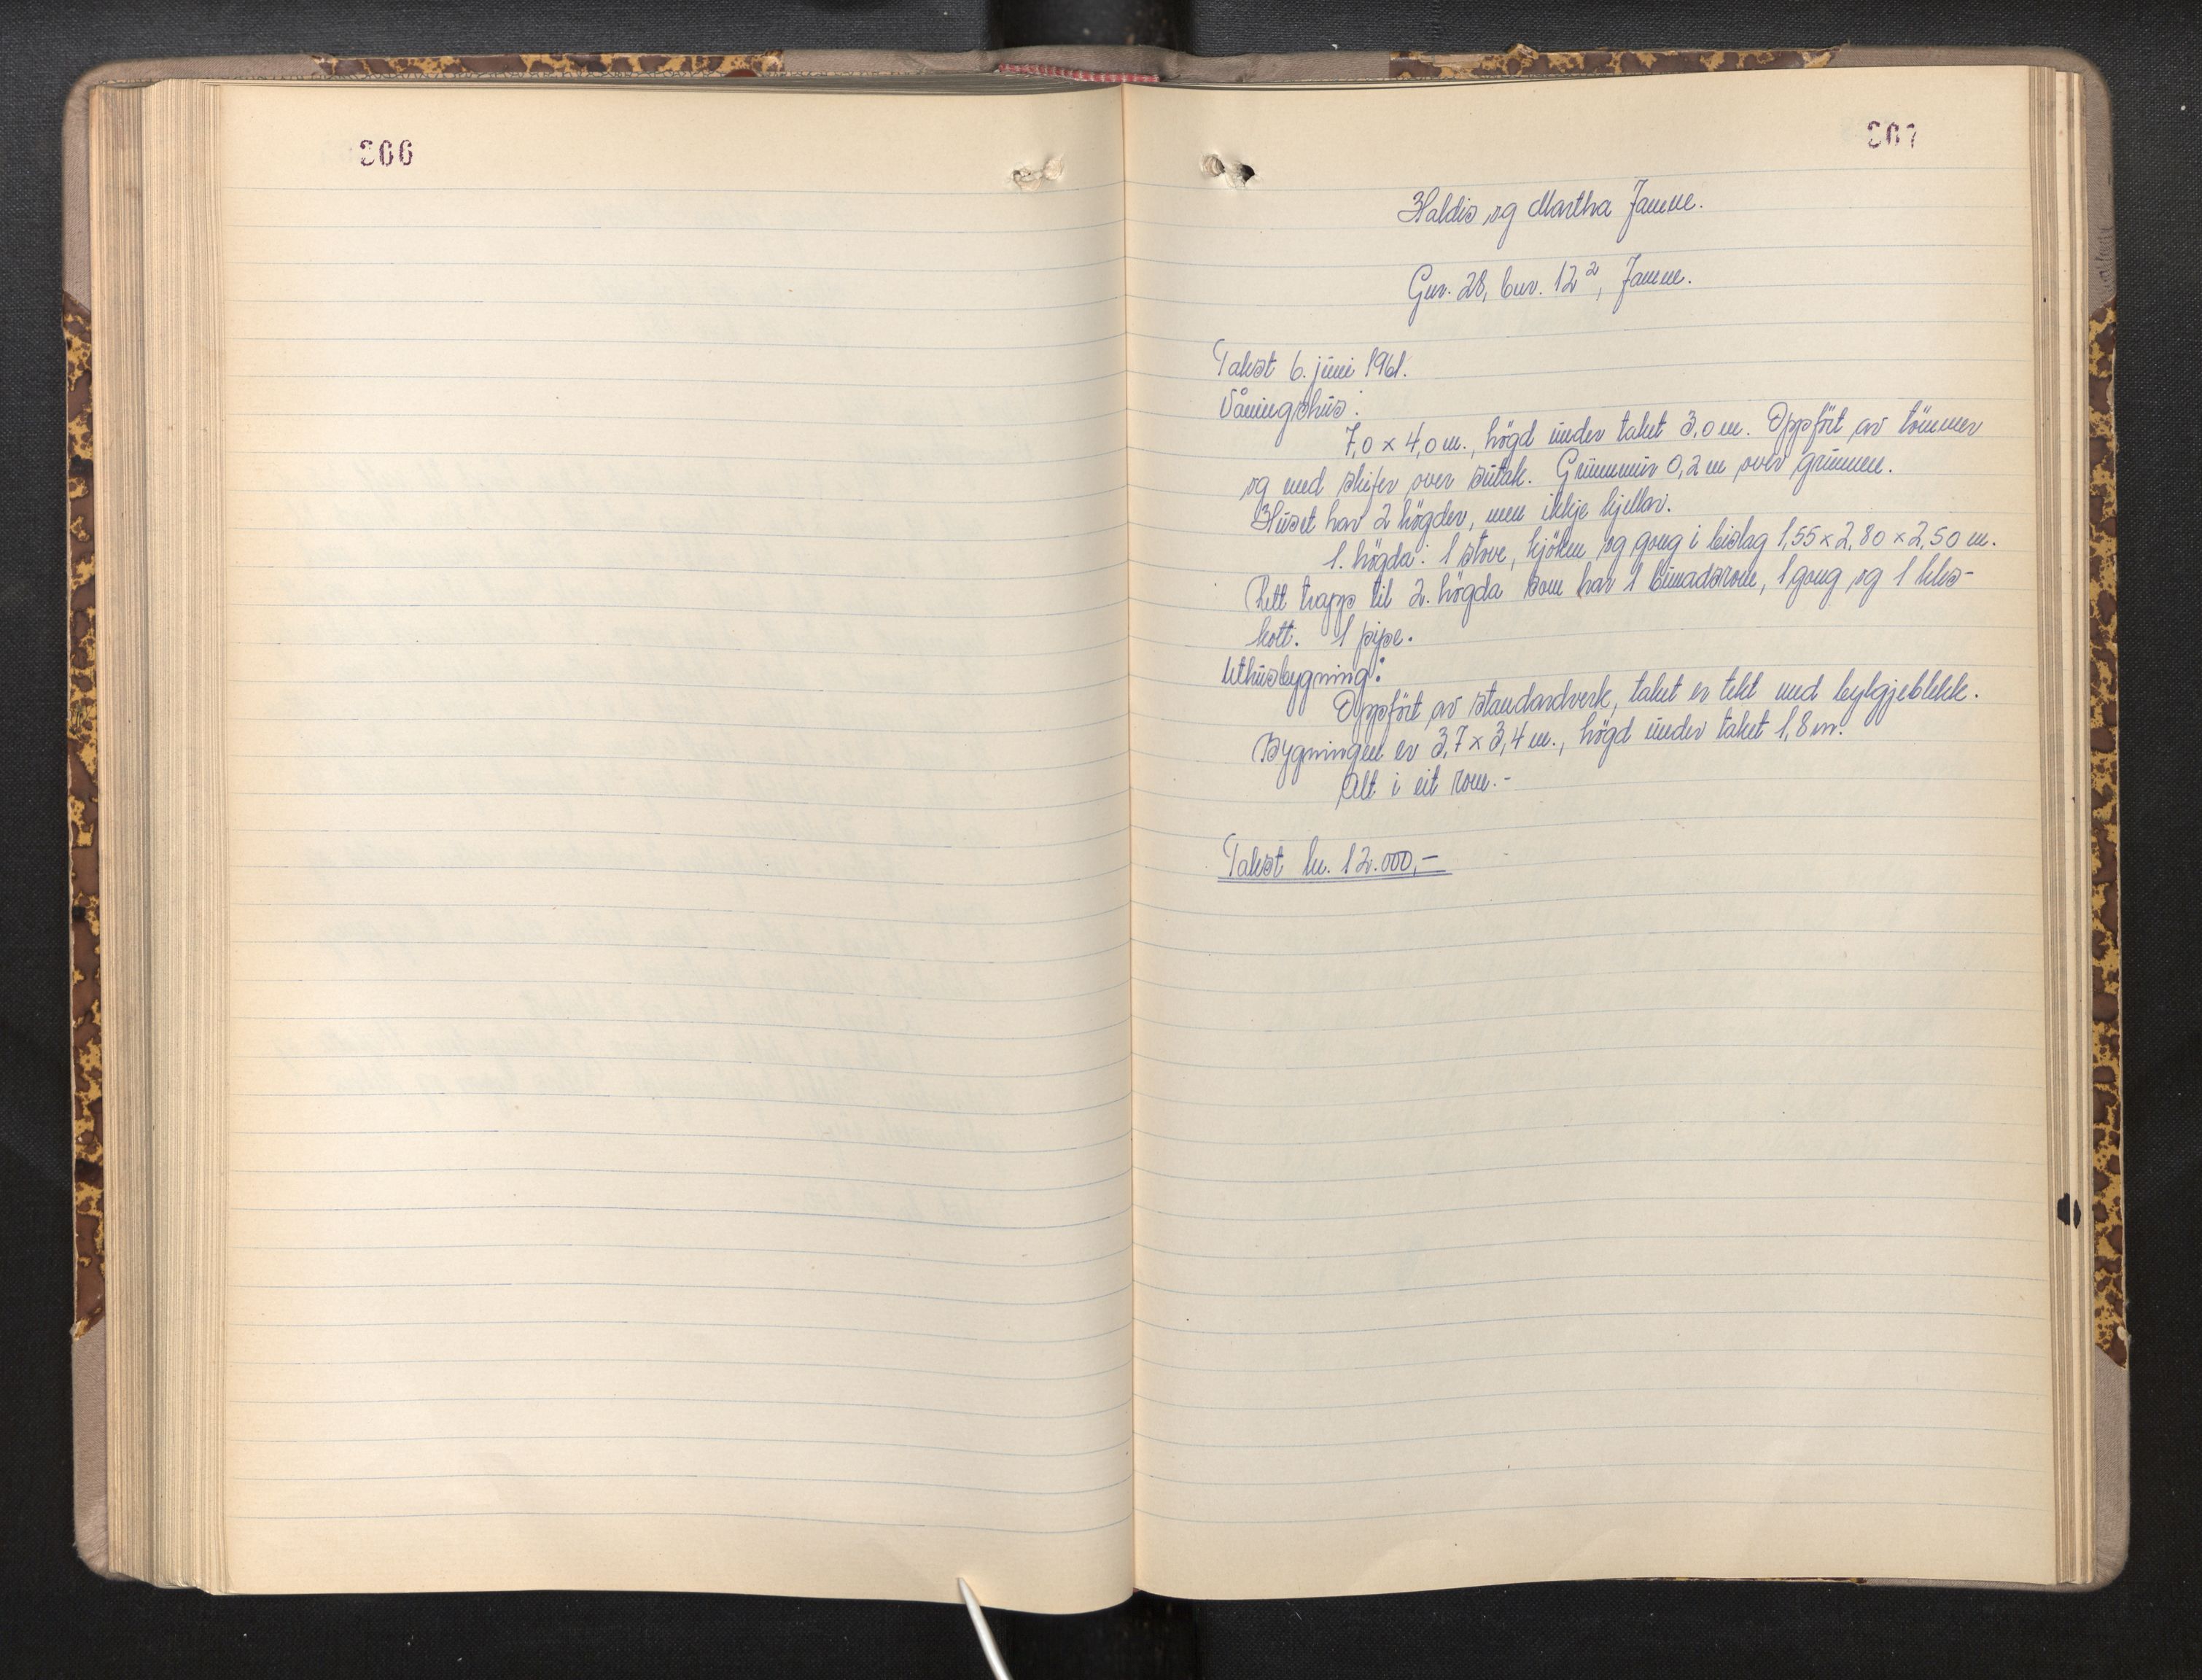 366
367
Haldis og Martha Jamne.
Gnr. 28, bnr. 12², Jamne.
Takst 6. juni 1961.
Våningshus:
7,0 x 4,0 m., högd under taket 3,0 m. Oppfört av tömmer
og med skifer over sutak. Grunnmur 0,2 m over grunnen.
Huset har 2 högder, men ikkje kjellar.
1. högda: 1 stove, kjöken og gong i bislag 1,55 x 2,80 x 2,50 m.
Rett trapp til 2. högda som har 1 bunadsrom, 1 gong og 1 kles-
kott. 1 pipe.
Uthusbygning:
Oppfört av standardverk, taket er tekt med bylgjeblekk.
Bygningen er 3,7 x 3,4 m., högd under taket 1,8 m.
Alt i eit rom.-
Takst kr. 12.000,-